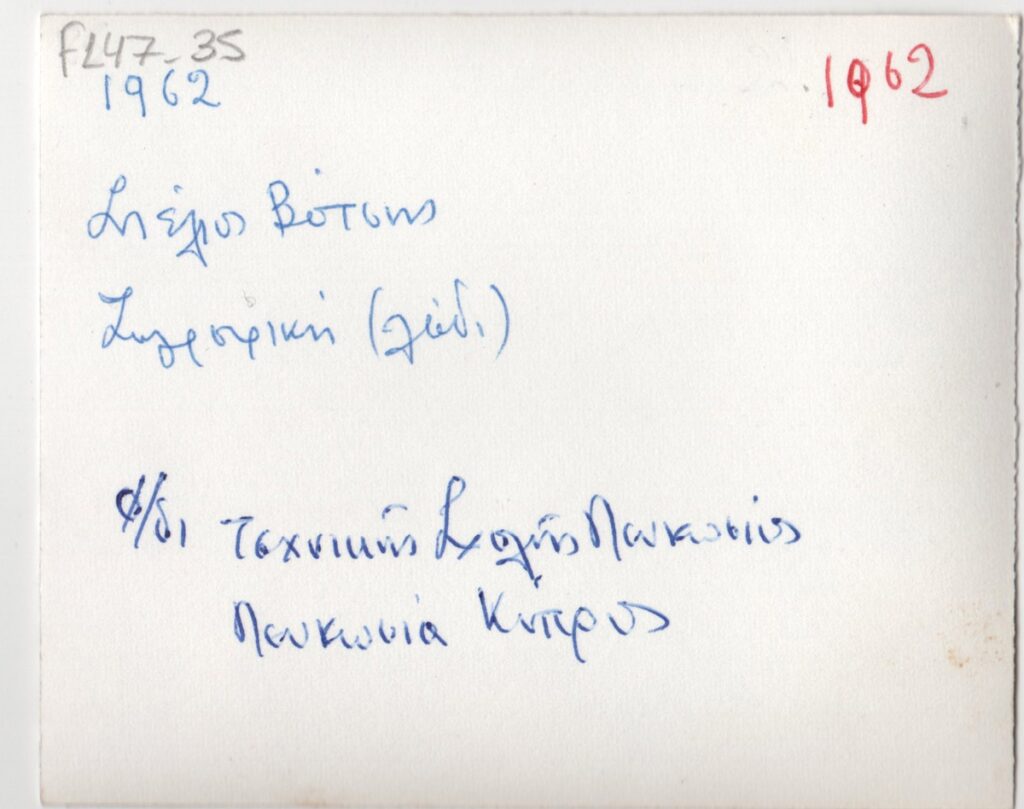 FL47-35
1962
1962
Στέλιος Βότσης
Ζωγραφική (λάδι)
δ/δι Τεχνικής Σχολής Λευκωσίας
Λευκωσία Κύπρος